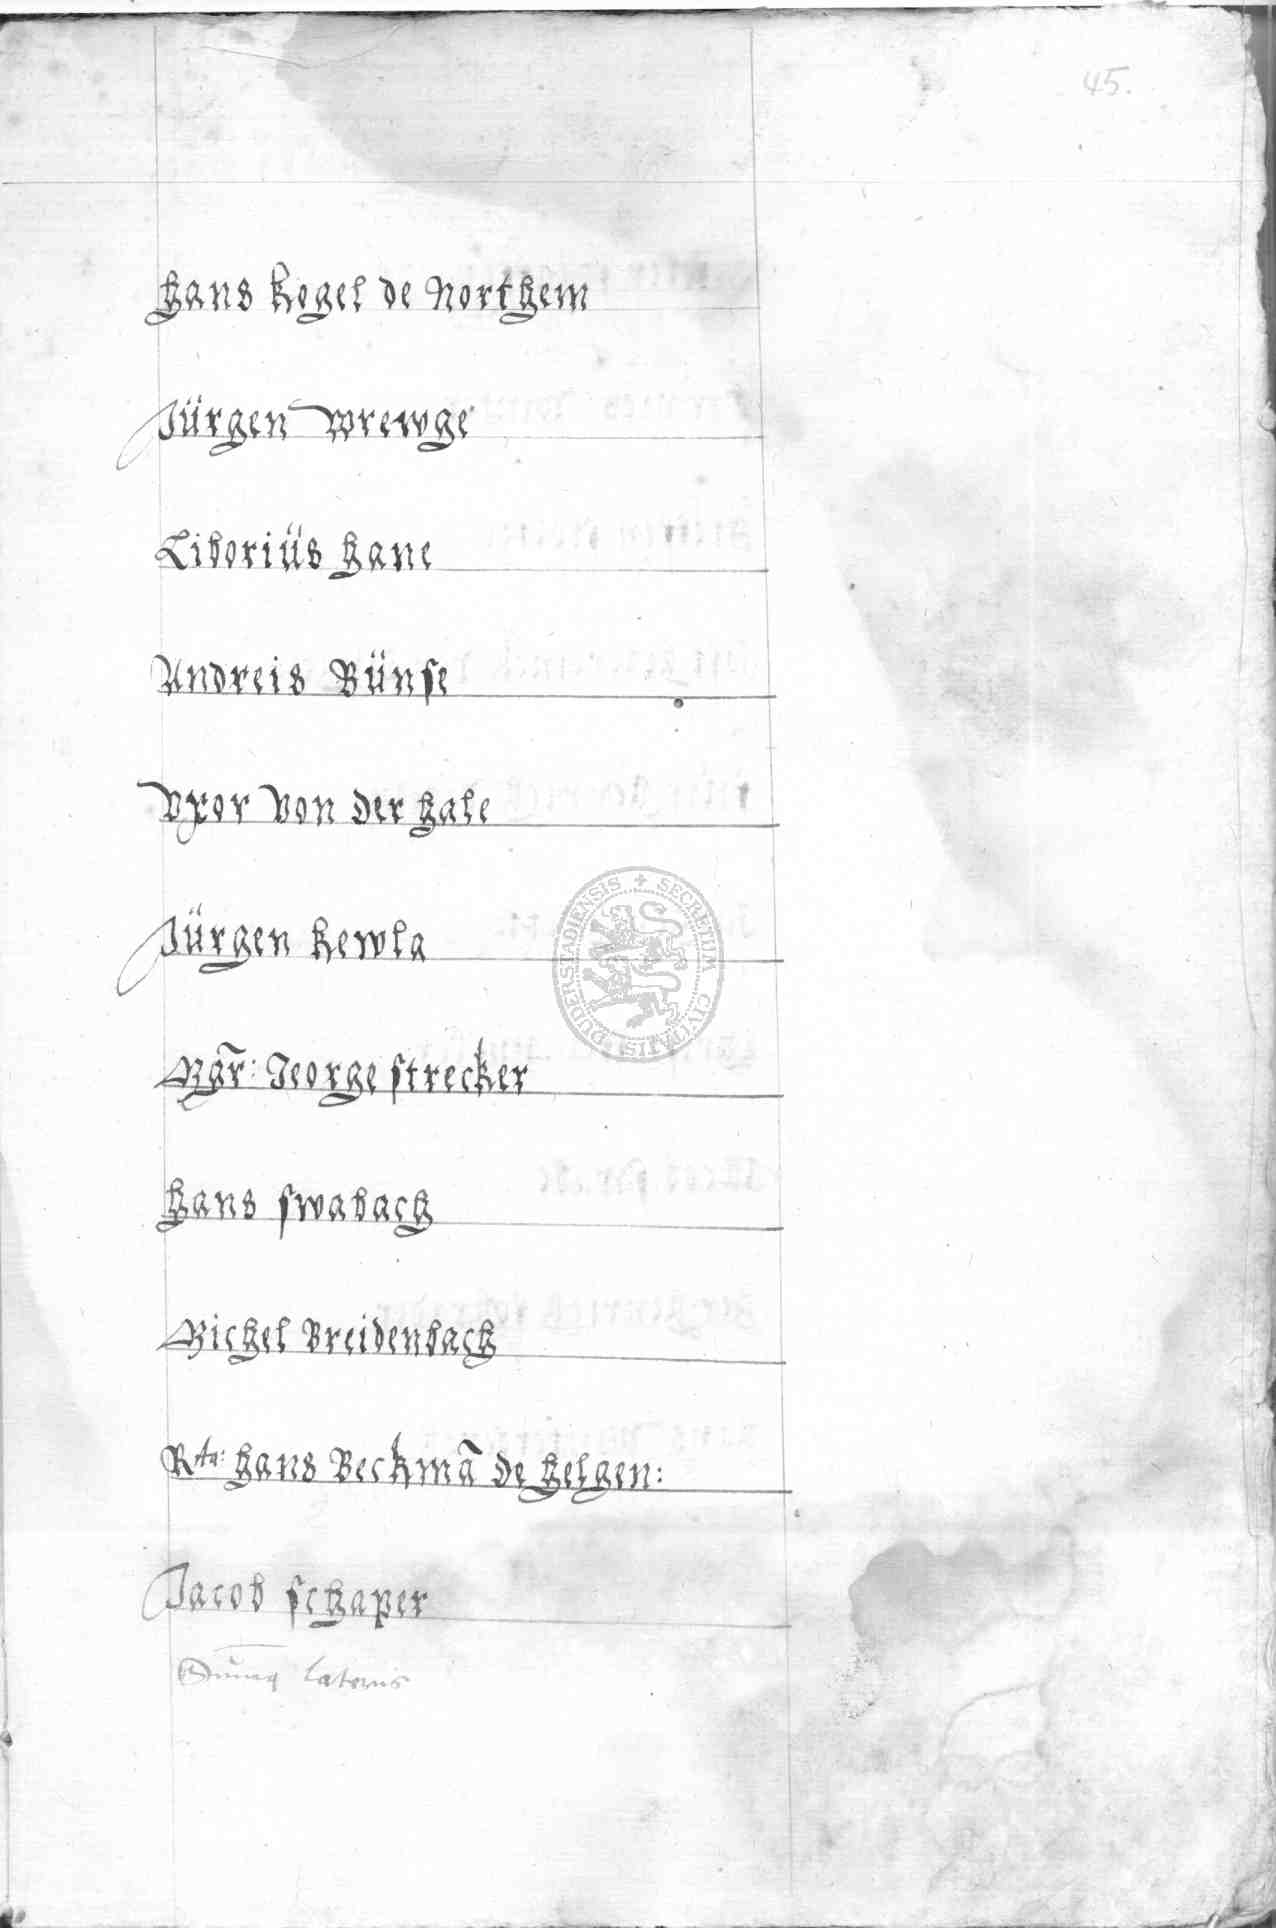 45.
Hans Kogel de Northem
Jürgen Wrewge
Liboriüs Hane
Andreis Bünse
Vxor Von der Hale
Jürgen Kewla
Mgr̃: Jeorge strecker
Hans swabach
Michel Breidenbach
Rta: Hans Beckmã de Helgen:
Jacob schaper
Summa Lateris
SECRETUM CIVITATIS DUDERSTADIENSIS